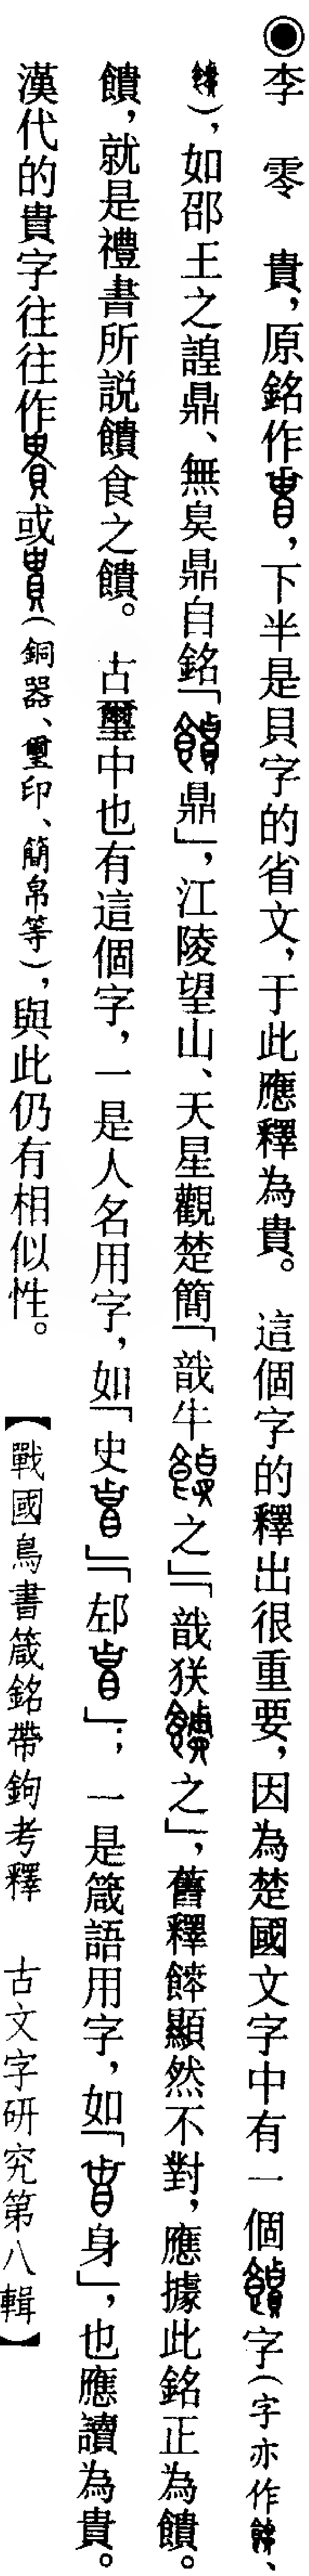 ◉李　零　貴，原銘作，下半是貝字的省文，于此應釋為貴。這個字的釋出很重要，因為楚國文字中有一個字（字亦作、
），如邵王之諻鼎、無臭鼎自銘「鼎」，江陵望山、天星觀楚簡「戠牛之」「戠之」，舊釋䭞顯然不對，應據此銘正為饋。
饋，就是禮書所說饋食之饋。古璽中也有這個字，一是人名用字，如「史」「邟」；一是箴語用字，如「身」，也應讀為貴。
漢代的貴字往往作或（銅器、璽印、簡帛等），與此仍有相似性。【戰國鳥書箴銘帶鉤考釋　古文字研究第八輯】